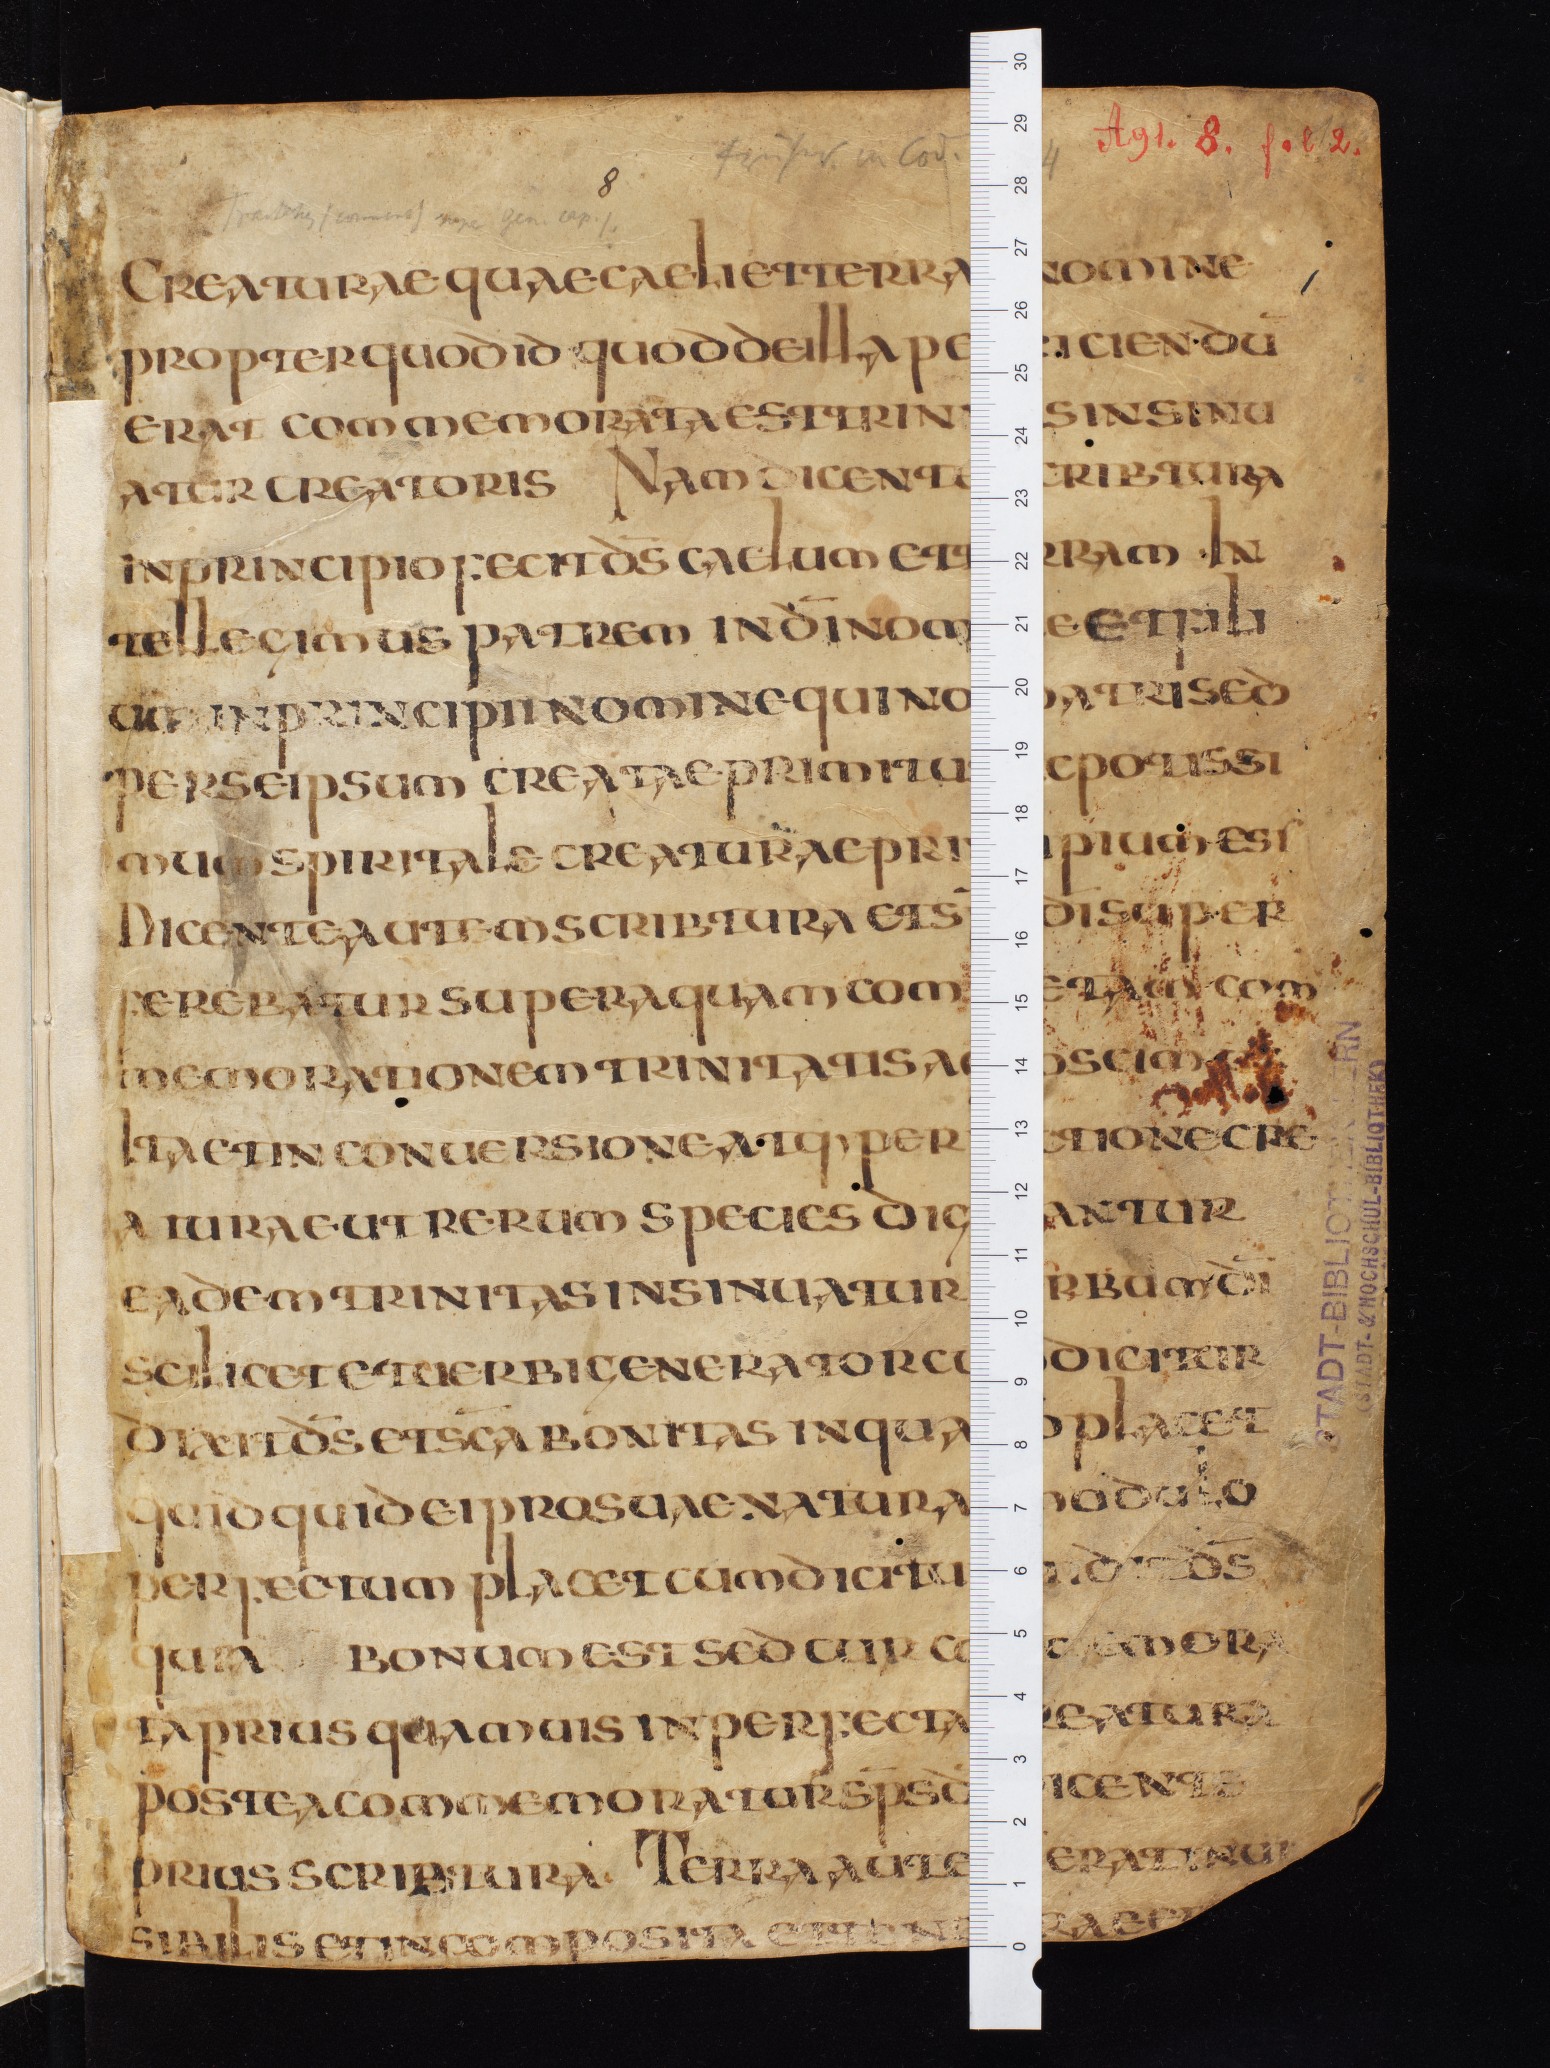 8
Agl. 8. fol 2.
CREATURAE QUAE CAELI ET TERRA NOMINE
PROPTER QUOD ID QUOD DE ILLA PE ICIENDŪ
ERAT COMMEMORATA EST TRIN S INSINU
ATUR CREATORIS NAM DICENTE CRIBTURA
IN PRINCIPIO FECIT D̄S CAELUM ET T RRAM IN
TELLEGIMUS PATREM IN DĪ NOM E ET FILI
UM IN PRINCIPII NOMINE QUI NO PATRI SED
PER SE IPSUM CREATAE PRIMITU AC POTISSI
MUM SPIRITALE CREATURAE PRI IPIUM EST
DICENTE AUTEM SCRIBTURA ET SP̄ DĪ SUPER
FEREBATUR SUPER AQUAM COM ETAM COM
MEMORATIONEM TRINITATIS AG OSCIM
ITA ET IN CONUERSIONE ATQ· PER ETIONE CRE
ATURAE UT RERUM SPECIES DIG ANTUR
EADEM TRINITAS INSINUATUR RBUM DĪ
SCILICET ET UERBI GENERATOR CU DICITUR
DIXIT D̄S ET S̄CA BONITAS IN QUA D̄O PLACET
QUIDQUID EI PRO SUAE NATURA MODULO
PERFECTUM PLACET CUM DICITU UIDIT D̄S
QUIA BONUM EST SED CUR CO EMORA
TA PRIUS QUAMUIS INPERFECTA REATURA
POSTEA COMMEMORATUR S̄P̄S D̄ ICENTE
PRIUS SCRIBTURA TERRA AUTE ERAT INUI
SIBILIS ET INCOMPOSITA ET TENE RAE E
STADT-BIBLIOTHEK BERN
(STADT- & HOCHSCHUL-BIBLIOTHEK)
30
29
28
27
26
25
24
23
22
21
20
19
18
17
16
15
14
13
12
11
10
9
8
7
6
5
4
3
2
1
0